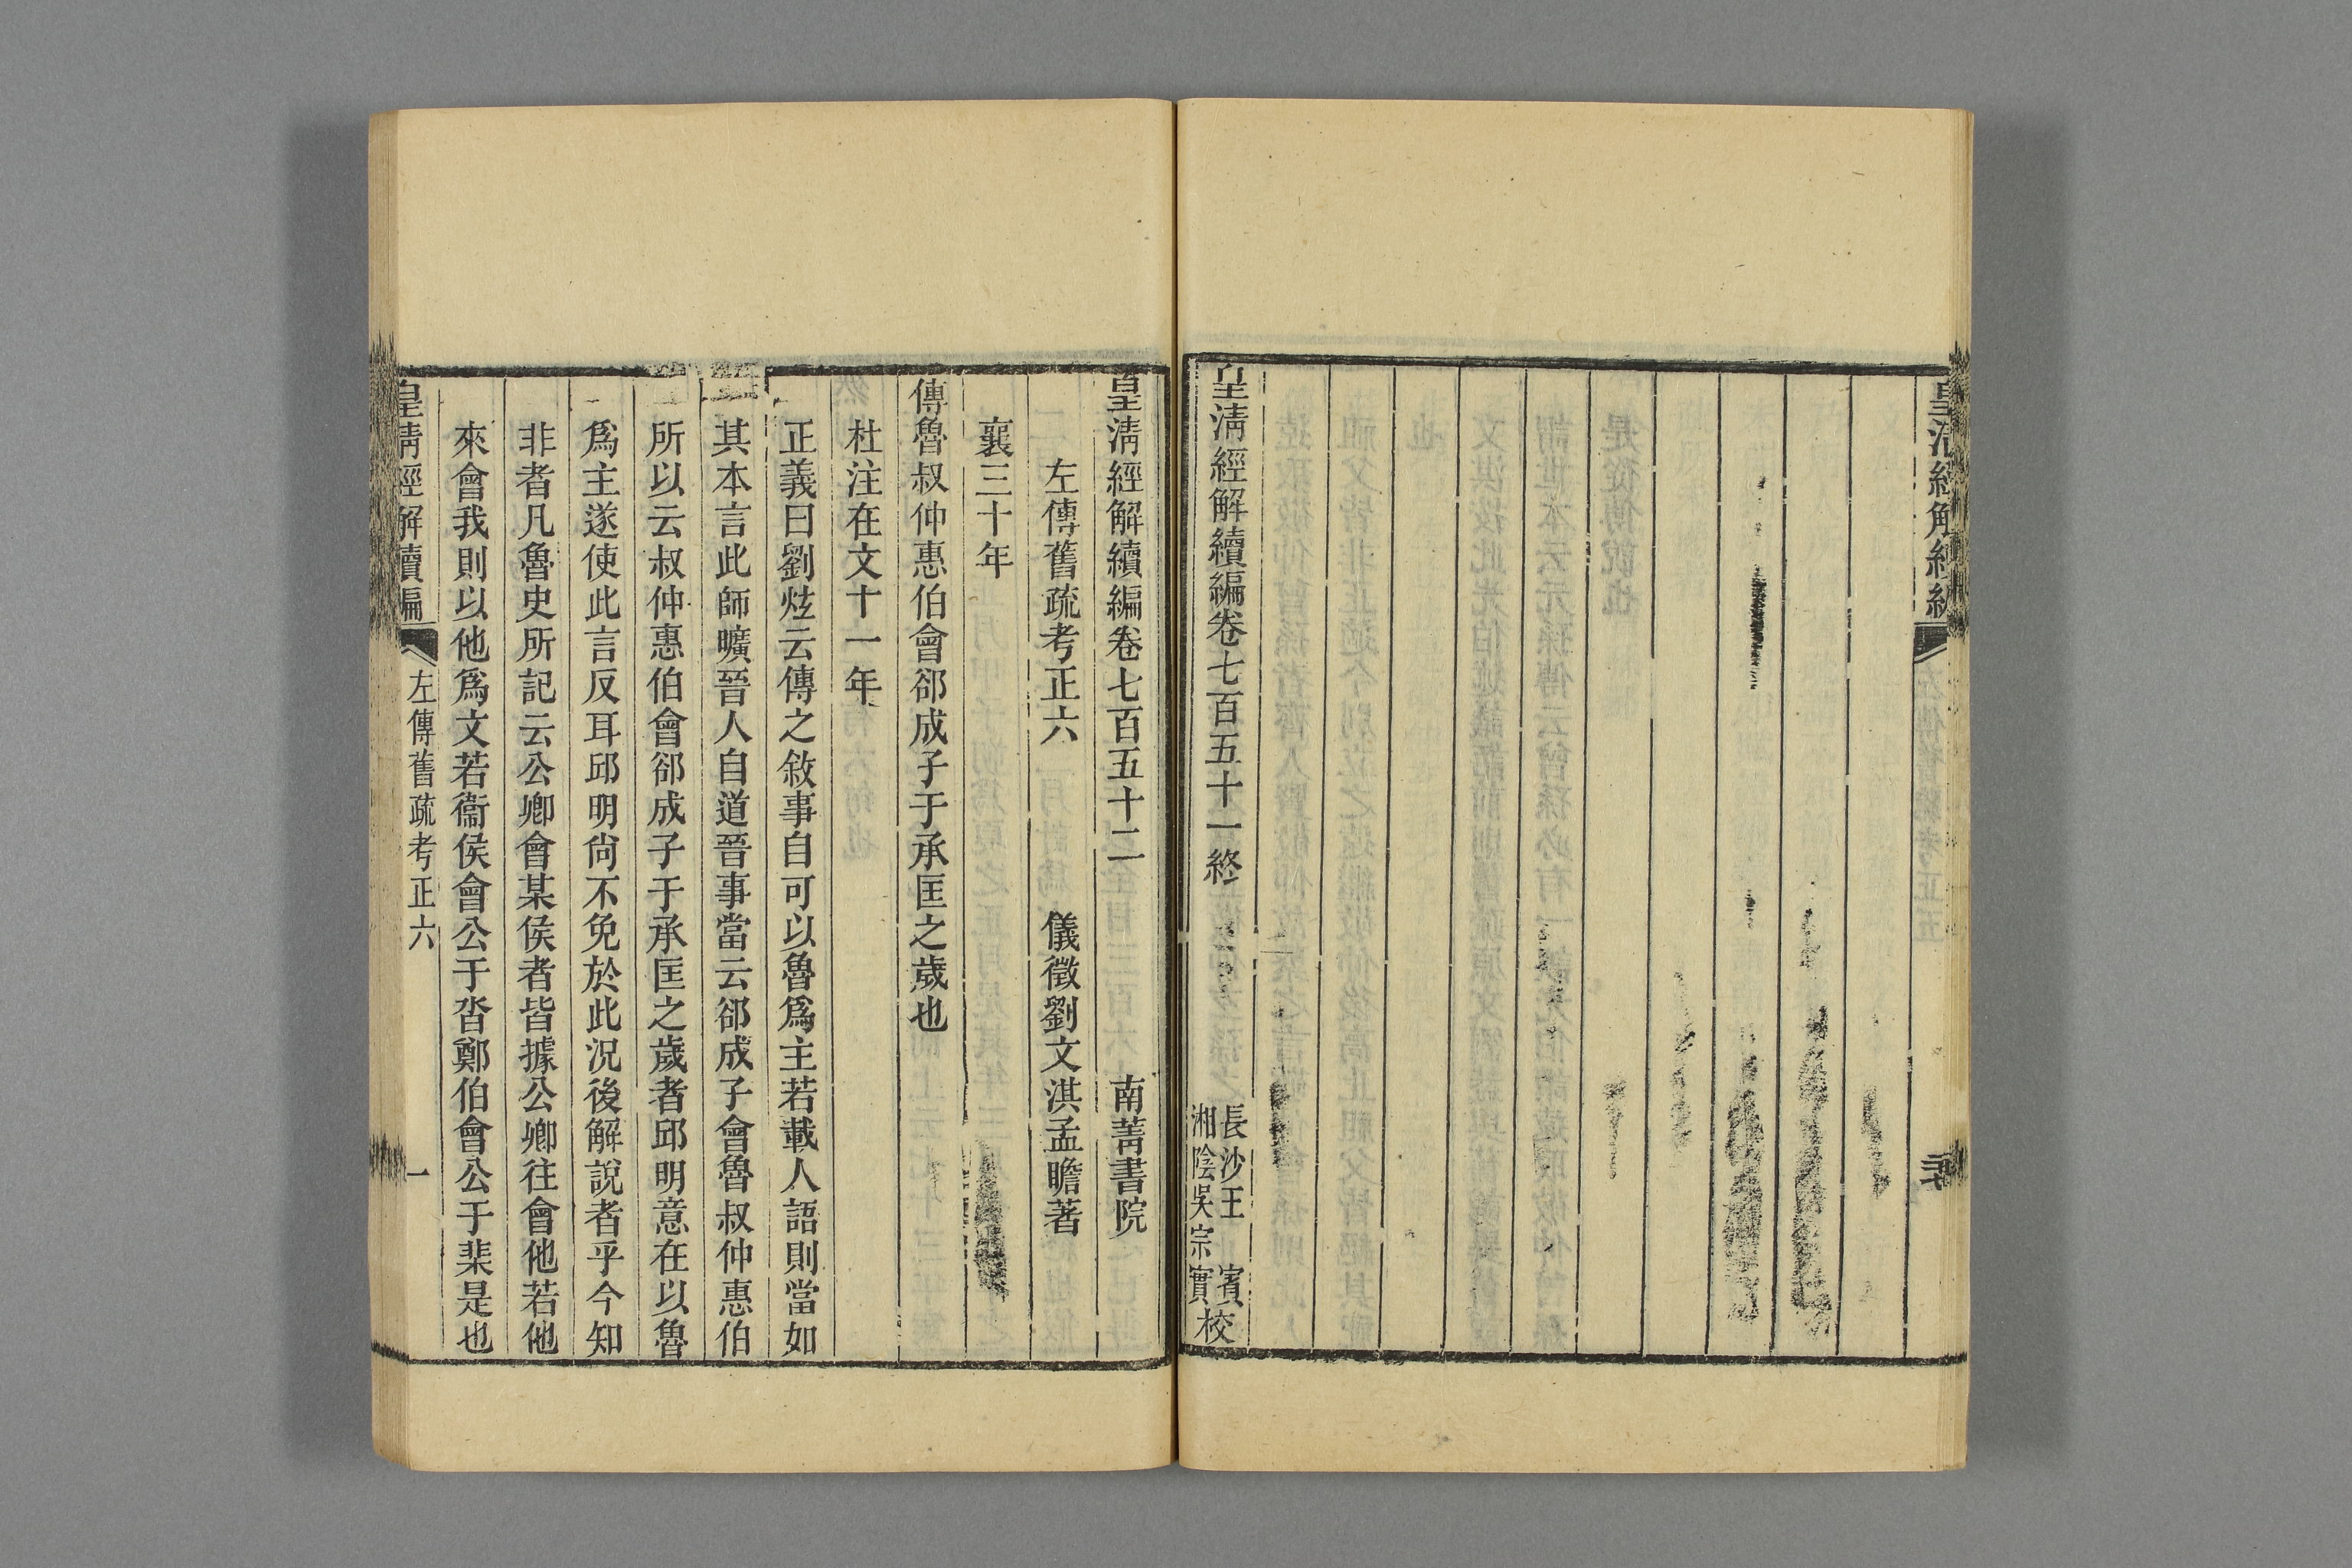 皇清經解續編
皇清經解續編卷七百五十一終
長沙王賓
湘陰吳宗實校
皇清經解續編卷七百五十二 南菁書院
左傳舊疏考正六 儀徵劉文淇孟瞻著
襄三十年
傳魯叔仲惠伯會郤成子于承匡之歲也
杜注在文十一年
正義曰劉炫云傳之敘事自可以魯爲主若載人語則當如
其本言此師曠晉人自道晉事當云郤成子會魯叔仲惠伯
所以云叔仲惠伯會郤成子于承匡之歲者邱明意在以魯
爲主遂使此言反耳邱明尙不免於此況後解說者乎今知
非者凡魯史所記云公卿會某侯者皆據公卿往會他若他
來會我則以他爲文若衞侯會公于沓鄭伯會公于棐是也
皇清經解續編 左傳舊疏考正六 一